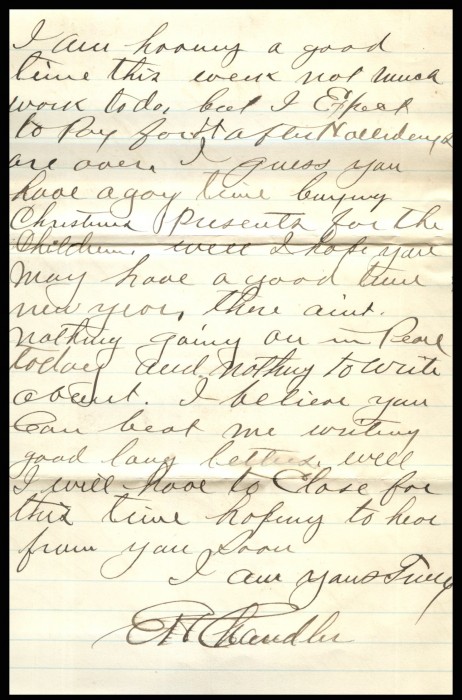 I am having a good
time this week not much
work to do, but I Expect
to Pay for it after Hollidays
are over. I guess you
have a gay time buying
Christmas presents for the
Children. well I hope you
may have a good time
new year, there aint.
nothing going on in Peru
today and nothing to write
about. I believe you
Can beat me writing
good long letters. well
I will have to Close for
this time hoping to hear
from you soon
I am yours Truly
Chandler